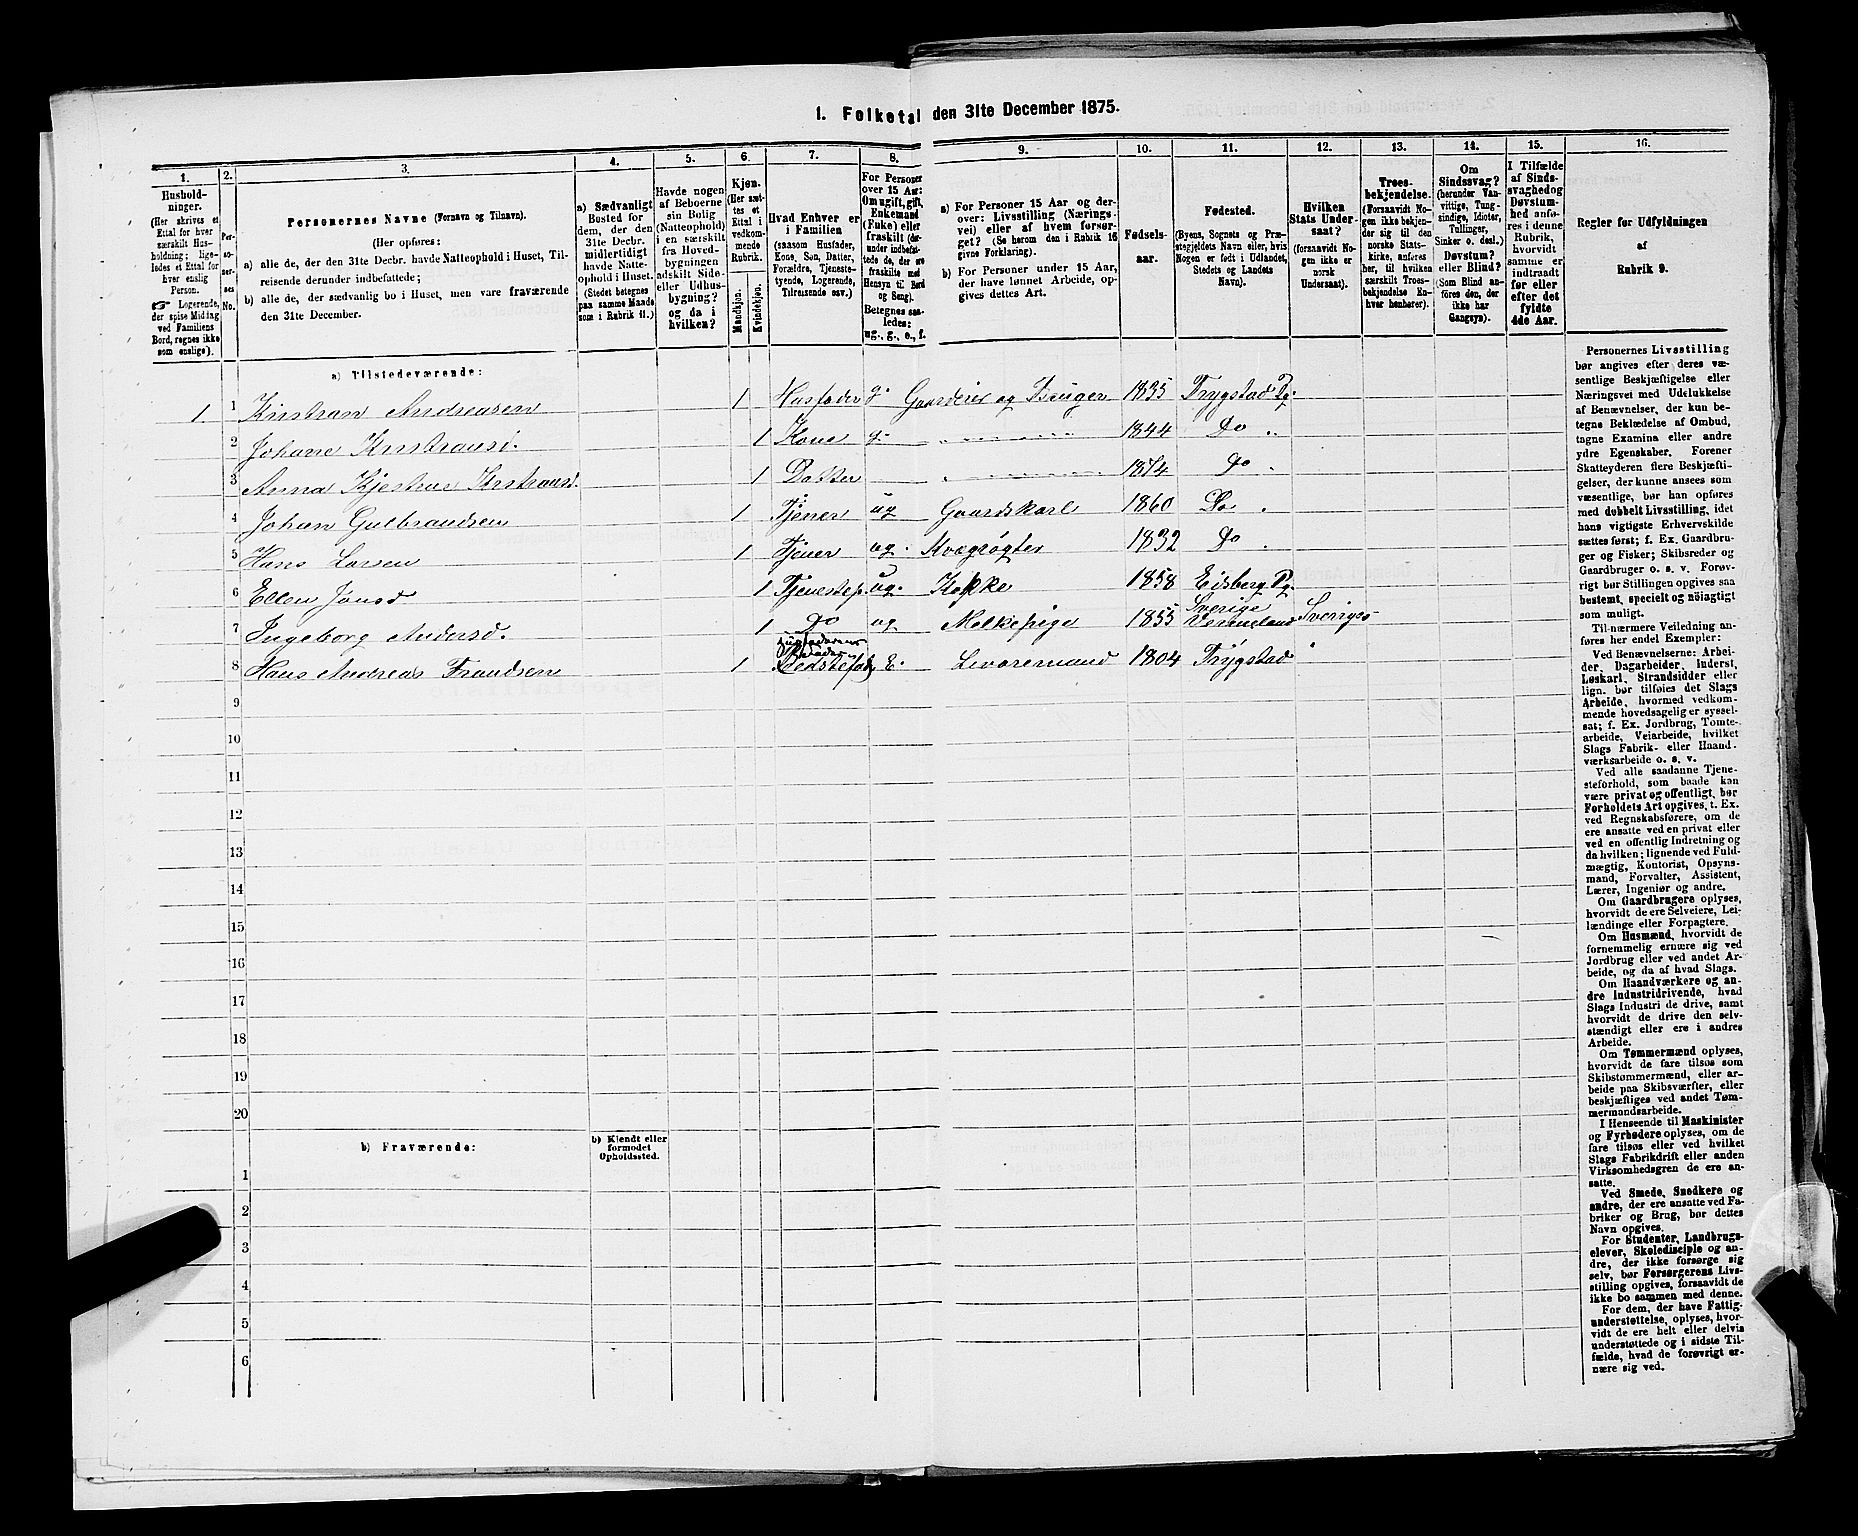 1. Folketal den 31te December 1875.
1. 2. 3. 4. 5. 6. 7. 8. 9. 10. 11. 12. 13. 14. 15. 16.
Hushold-
ninger.
(Her skrives et
Ettal for hver
særskilt Hus-
holdning; lige-
ledes et Ettal for
hver enslig
Person.
☞ Logerende,
der spise Middag
ved Familiens
Bord, regnes ikke
som enslige).
Per-
so-
ner-
nes
No.
Personernes Navne (Fornavn og Tilnavn).
(Her opføres:
a) alle de, der den 31te Decbr. havde Natteophold i Huset, Til-
reisende derunder indbefattede;
b) alle de, der sædvanlig bo i Huset, men vare fraværende
den 31te December.
a) Sædvanligt
Bosted for
dem, der den
31te Decbr.
midlertidigt
havde Natte-
ophold i Huset.
(Stedet betegnes
paa samme Maade
som i Rubrik 11.)
Havde nogen
af Beboerne
sin Bolig
(Natteophold)
i en særskilt
fra Hoved-
bygningen
adskilt Side-
eller Udhus-
bygning?
og da i
hvilken?
Kjøn.
(Her sæt-
tes et
Ettal i
vedkom-
mende
Rubrik.
Mandkjøn.
Kvindekjøn.
Hvad Enhver er
i Familien
(saasom Husfader,
Kone, Søn, Datter,
Forældre, Tjeneste-
tyende, Logerende,
Tilreisende osv.)
For Personer
over 15 Aar:
Om ugift, gift,
Enkemand
(Enke) eller
fraskilt (der-
under indbefat-
tede de, der ere
fraskilte med
Hensyn til Bord
og Seng).
Betegnes saa-
ledes:
ug., g., e., f.
a) For Personer 15 Aar og der-
over: Livsstilling (Nærings-
vei) eller af hvem forsør-
get? (Se herom den i Rubrik 16
givne Forklaring).
b) For Personer under 15 Aar,
der have lønnet Arbeide, op-
gives dettes Art.
Fødsels-
aar.
Fødested.
(Byens, Sognets og Præ-
stegjeldets Navn eller, hvis
Nogen er født i Udlandet,
Stedets og Landets
Navn).
Hvilken
Stats Under-
saat?
(forsaavidt No-
gen ikke er
norsk
Undersaat).
Troes-
bekjendelse.
(Forsaavidt No-
gen ikke bekjen-
der sig til den
norske Stats-
kirke, anføres
her, til hvilken
særskilt Troes-
bekjendelse En-
hver henhører).
Om
Sindssvag?
(herunder Van-
vittige, Tung-
sindige, Idioter,
Tullinger,
Sinker o. desl.)
Døvstum?
eller Blind?
(Som Blind an-
føres den, der
ikke har
Gangsyn).
I Tilfælde
af Sinds-
svaghed og
Døvstum-
hed anfø-
res i denne
Rubrik,
hvorvidt
samme er
indtraadt
før eller
efter det
fyldte
4de Aar.
Regler før Udfyldningen
af
Rubrik 9.
a) Tilstedeværende:
1. 1 Kristian Andreasen 1 Husfader g. Gaardeier og Bruger 1835 Trygstad Pg.
2 Johane Kristiansd. 1 Kone g. 1844 Do
3 Anna Kjestine Kristiansd. 1 Datter 1874 Do
4 Johan Gulbrandsen 1 Tjener ug Gaardskarl 1860 Do
5 Hans Larsen 1 Tjener ug. Kvægrøgter 1832 Do
6 Ellen Jonsd 1 Tjenestep. ug. Kokke 1858 Eidsberg Pg.
7 Ingeborg Andersd. 1 Do ug Melkepige 1855 Sverige Vermeland Sveriges
8 Hans Andreas Frandsen 1 Bedstefad E. Livøremand 1804 Trygstad
9
10
11
12
13
14
15
16
17
18
19
20
b) Fraværende:
b) Kjendt eller
formodet
Opholdssted.
1
2
3
4
5
6
Personernes Livsstilling
bør angives efter deres væ-
sentlige Beskjæftigelse eller
Næringsvei med Udelukkelse
af Benævnelser, der kun be-
tegne Beklædelse af Ombud,
tagne Examina eller andre
ydre Egenskaber. Forener
Skatteyderen flere Beskjæfti-
gelser, der kunne ansees som
væsentlige, bør han opføres
med dobbelt Livsstilling, idet
hans vigtigste Erhvervskilde
sættes først; f. Ex. Gaardbru-
ger og Fisker; Skibsreder og
Gaardbruger o. s. v. Forøv-
rigt bør Stillingen opgives saa
bestemt, specielt og nøiagtigt
som muligt.
Til nærmere Veiledning an-
føres her endel Exempler:
Ved Benævnelserne: Arbei-
der, Dagarbeider, Inderst,
Løskarl, Strandsidder eller
lign. bør tilføies det Slags
Arbeide, hvormed vedkom-
mende hovedsagelig er syssel-
sat; f. Ex. Jordbrug, Tomte-
arbeide, Veiarbeide, hvilket
Slags Fabrik- eller Haand-
værksarbeide o. s. v.
Ved alle saadanne Tjene-
steforhold, som baade kan
være privat og offentligt, bør
Forholdets Art opgives, t. Ex.
ved Regnskabsførere, om de
ere ansatte ved en privat eller
ved en offentlig Indretning og
da hvilken; lignende ved Fuld-
mægtig, Kontorist, Opsyns-
mand, Forvalter, Assistent,
Lærer, Ingeniør og andre.
Om Gaardbrugere oplyses,
hvorvidt de ere Selveiere, Lei-
lændinge eller Forpagtere.
Om Husmænd, hvorvidt de
fornemmelig ernære sig ved
Jordbrug eller ved andet Ar-
beide, og da af hvad Slags.
Om Haandværkere og an-
dre Industridrivende, hvad
Slags Industri de drive, samt
hvorvidt de drive den selv-
stændigt eller ere i andres
Arbeide.
Om Tømmermænd oplyses,
hvorvidt de fare tilsøs som
Skibstømmermænd, eller ar-
beide paa Skibsværfter, eller
beskjæftiges ved andet Tøm-
mermandsarbeide.
I Henseende til Maskinister
og Fyrbødere oplyses, om de
fare tilsøs eller ved hvilket
Slags Fabrikdrift eller anden
Virksomhedsgren de ere an-
satte.
Ved Smede, Snedkere og
andre, der ere ansatte ved Fa-
briker og Brug, bør dettes
Navn opgives.
For Studenter, Landbrugs-
elever, Skoledisciple og an-
dre, der ikke forsørge sig
selv, bør Forsørgerens Livs-
stilling opgives, forsaavidt de
ikke bo sammen med denne.
For dem, der have Fattig-
understøttelse, oplyses, hvor-
vidt de ere helt eller delvis
understøttede og i sidste Til-
fælde, hvad de forøvrigt er-
nære sig ved.